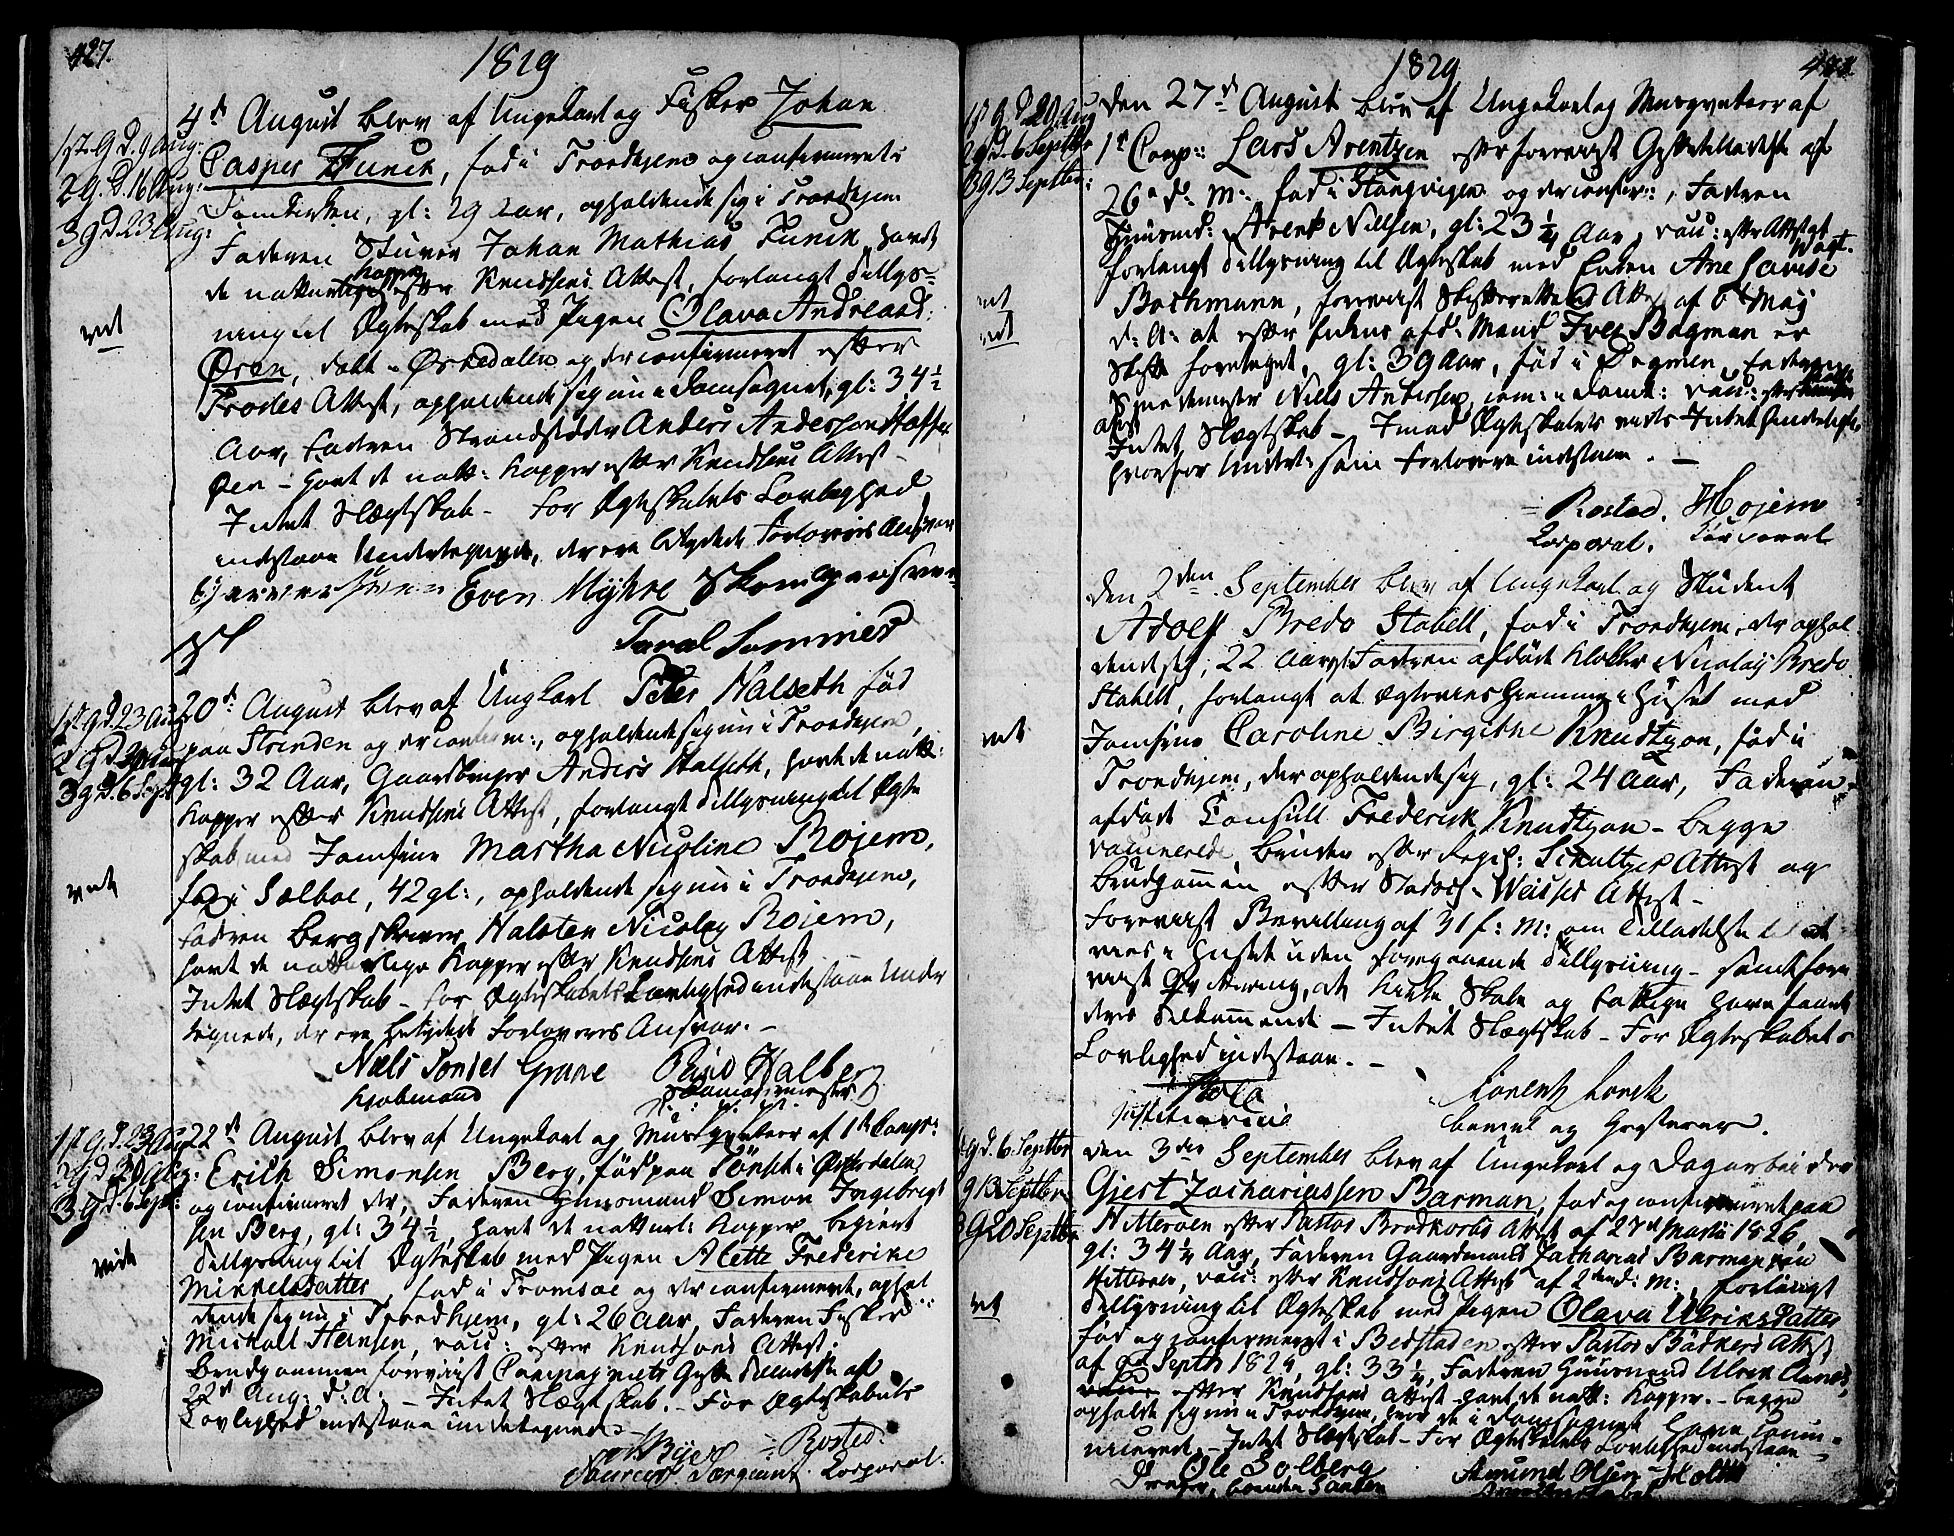 427.
1829
1st. G d. 9 Aug:
2 G. d. 16 Aug:
3 G d 23 Aug:
viet
4d August blev af Ungekarl og Fisker Johan
Casper Funck, fød i Trondhjem og confirmeret i
Domkirken, gl: 29 Aar, opholdende sig i Trondhjem
Faderen Skriver Johan Mathias Funck, havt
de naturlige Kopper efter Knudsens Attest, forlangt Tillys-
ning til Ægteskab med Pigen Olava Andreasd:
Øren, født i Ørkedalen og der confirmeret efter
Frodes Attest, opholdende sig nu i Domsognet, gl: 34 1/2
Aar, Faderen Strandsidder Anders Anderssen
Øen - havt de natt: Kopper efter Knudsens Attest -
Intet Slægtskab - For Ægteskabets Lovlighed
indestaae Undertegnede, der ere betydede Forloveres Ansvar
Even Myhre
Sommer
1st G d. 23 Aug
3 G d. 6 Sept
viet
20d August blev af Ungkarl Peter Halseth fød
paa Strinden og der confirm:, opholdende sig nu i Trondhjem,
gl: 32 Aar, Gaardbruger Anders Halseth, havt de natt:
Kopper efter Knudsens Attest, forlangt Tillysning til Ægte
skab med Jomfrue Martha Nicoline Rojem,
fød i Sælboe, 42 gl:, opholdende sig nu i Trondhjem,
Faderen Bergskriver Halsten Nicolay Rojem,
havt de naturlige Kopper efter Knudsens Attest
Intet Slægtskab - For Ægteskabets Lovlighed indestaae Under
tegnede, der ere betydede Forloveres Ansvar. -
Niels Grane Halberg
Kiøbmand
1st G d. 23 Aug
2 G d. 30 Aug:
3 G d. 6 Sept:
viet
22d August blev af Ungekarl og Musqueteer af 1ste Comp:
Erich Simonsen Berg, fød paa Tønset i Østerdalen,
og confirmeret der, Faderen Huusmand Simon Ingebrigt
sen Berg, gl: 34 1/2, havt de natturl: Kopper, begiert
Tillysning til Ægteskab med Pigen Alette Frederike
Mikkelsdatter, fød i Tromsøe og der confirmeret, ophol
dende sig nu i Trondhjem, gl: 26 Aar, Faderen Fisker
Michael Hansen, vacc: efter Knudsons Attest.
Brudgommen foreviist Compagniets Gifte Tilladelse af
22d Aug: d: A: - Intet Slægtskab. - For Ægteskabets
Lovlighed indestaae undertegnede -
Rosted:
Sergiant. Corporal.
1829
1st G d 29 Aug
2 G d. 6 Septbr
3 G 13 Septbr:
viet
Den 27d August blev af Ungekarl og Musqueteer af
1e Comp: Lars Arentzen efter foreviist Giftetilladelse af
26d d: M:, fød i Stangvigen og der confir:, Faderen
Huusmd: Arent Nillsen, gl: 23 1/4 Aar, vacc: efter Attest
forlangt Tillysning til Ægteskab med Enken Ane Lovise
Bachmann, foreviist Skifterettens Attest af 6te May
d: A: at efter hendes afd: Mand Iver Bagman er
Skifte foretaget, gl: 39 Aar, fød i Bergen, Faderen
Niels Andersen, conf: i Domk: vacc: efter
Attest Intet Slægtskab - Imod Ægteskabet vides Intet hinderligt,
hvorfor Undert: som Forlovere indestaae. -
Rosted. Hojem
Corporal. Corporal
viet
Den 2den September blev af Ungekarl og Student
Adolff Bredo Stabell, fød i Trondhjem, der ophol
dende sig, 22 Aar gl: Faderen afdøde Klokker Nicolay Bredo
Stabell, forlangt at Ægtevies hjemme i Huset med
Jomfrue Caroline Birgithe Knudtzon, fød i
Trondhjem, der opholdende sig, gl: 24 Aar, Faderen
afdøde Consull Frederick Knudtzon - begge
vaccinerede, Bruden efter Regil: Schultzes Attest og
Brudgommen efter Stadsch: Weisses Attest -
Foreviist Bevilling af 31 f: M: om Tilladelse til at
vies i Huset uden foregaaende Tillysning - samt fore
viist Qvittering, at Kirke, Skole og Fattige have faaet
deres Tilkommende - Intet Slægtskab - For Ægteskabets
Lovlighed indestaae. -
Lorentz Lorck
Consul og Grosserer.
1 G d. 6 Septbr
G 13 Septbr
3 G 20 Septbr
viet
Den 3die September blev af Ungekarl og Dagarbeider
Gjert Zachariassen Barman, fød og confirmeret paa
Hitteröen efter Pastor Brodkorbs Attest af 27d Martii 1826,
gl: 34 1/4 Aar, Faderen Gaardmand Zacharias Barman paa
Hitteröen, vacc: efter Knudsons Attest af 2den d: M:, forlangt
Tillysning til Ægteskab med Pigen Olava Ulriksdatter
fød og confirmeret i Bedstaden efter Pastor Bödkers Attest
af Septb 1824, gl: 33 1/4, Faderen Huusmand Ulrik
efter Knudsons Attest havt de natt: Kopper. - begge
opholde sig nu i Trondhjem, hvor de i Domsognet have com-
municeret. - Intet Slægtskab - For Ægteskabets Lovlighed indestaae -
Ole Solberg Amund Olsen Holte